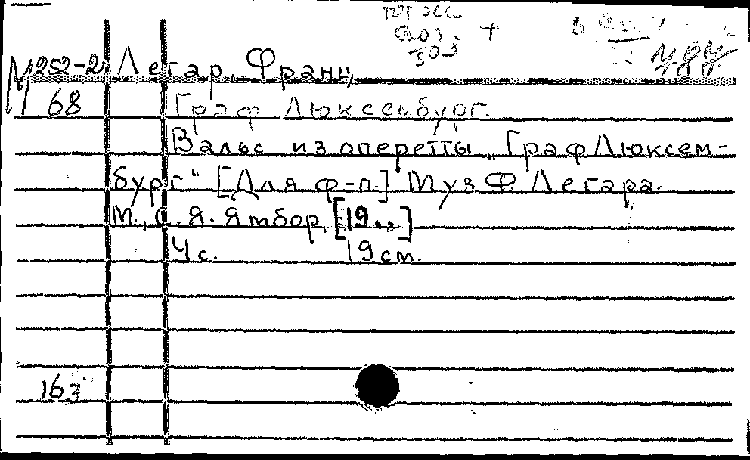 М 252-2 Легар, Франц
68 Граф Люксембург.
Вальс из оперетты „Граф Люксем-
бург" [Для ф-п.] Муз. Ф. Легара.
М., С. Я. Ямбор, [19..]
4 с. 19 см.
163